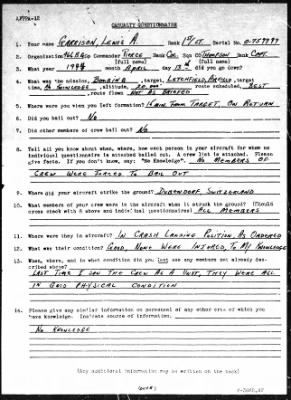 AFPPA-12
CASUALTY QUESTIONNAIRE
1. Your name GARRISON, LEWIS A. Rank 1ST LT Serial No.
2. Organization Commander PIERCE Rank COL Sqn CO THOMPSON Rank CAPT
(full name) (full name)
3. What year 1944 month APRIL day 13 did you go down?
4. What was the mission, BOMBING, target, target
time, NO KNOWLEDGE, altitude, route scheduled, BEST
, route flown NOT AS BRIEFED
5. Where were you when you left formation? FROM TARGET, ON RETURN
6. Did you bail out? NO
7. Did other members of crew bail out? NO
8. Tell all you know about when, where, how each person in your aircraft for whom no
individual questionnaire is attached bailed out. A crew list is attached. Please
give facts. If you don't know, say: "No Knowledge". NO MEMBERS OF
CREW WERE FORCED TO BAIL OUT
9. Where did your aircraft strike the ground? DUBENDORF, SWITZERLAND
10. What members of your crew were in the aircraft when it struck the ground? (Should
cross check with 8 above and individual questionnaires) ALL MEMBERS
11. Where were they in aircraft? IN CRASH LANDING POSITION, AS ORDERED
12. What was their condition? GOOD, NONE WERE INJURED, TO MY KNOWLEDGE
13. When, where, and in what condition did you last see any members not already des-
cribed above?
LAST TIME I SAW THE CREW AS A UNIT, THEY WERE ALL
IN GOOD PHYSICAL CONDITION
14. Please give any similar information on personnel of any other crew of which you
have knowledge. Indicate source of information.
NO KNOWLEDGE
(Any additional information may be written on the back)